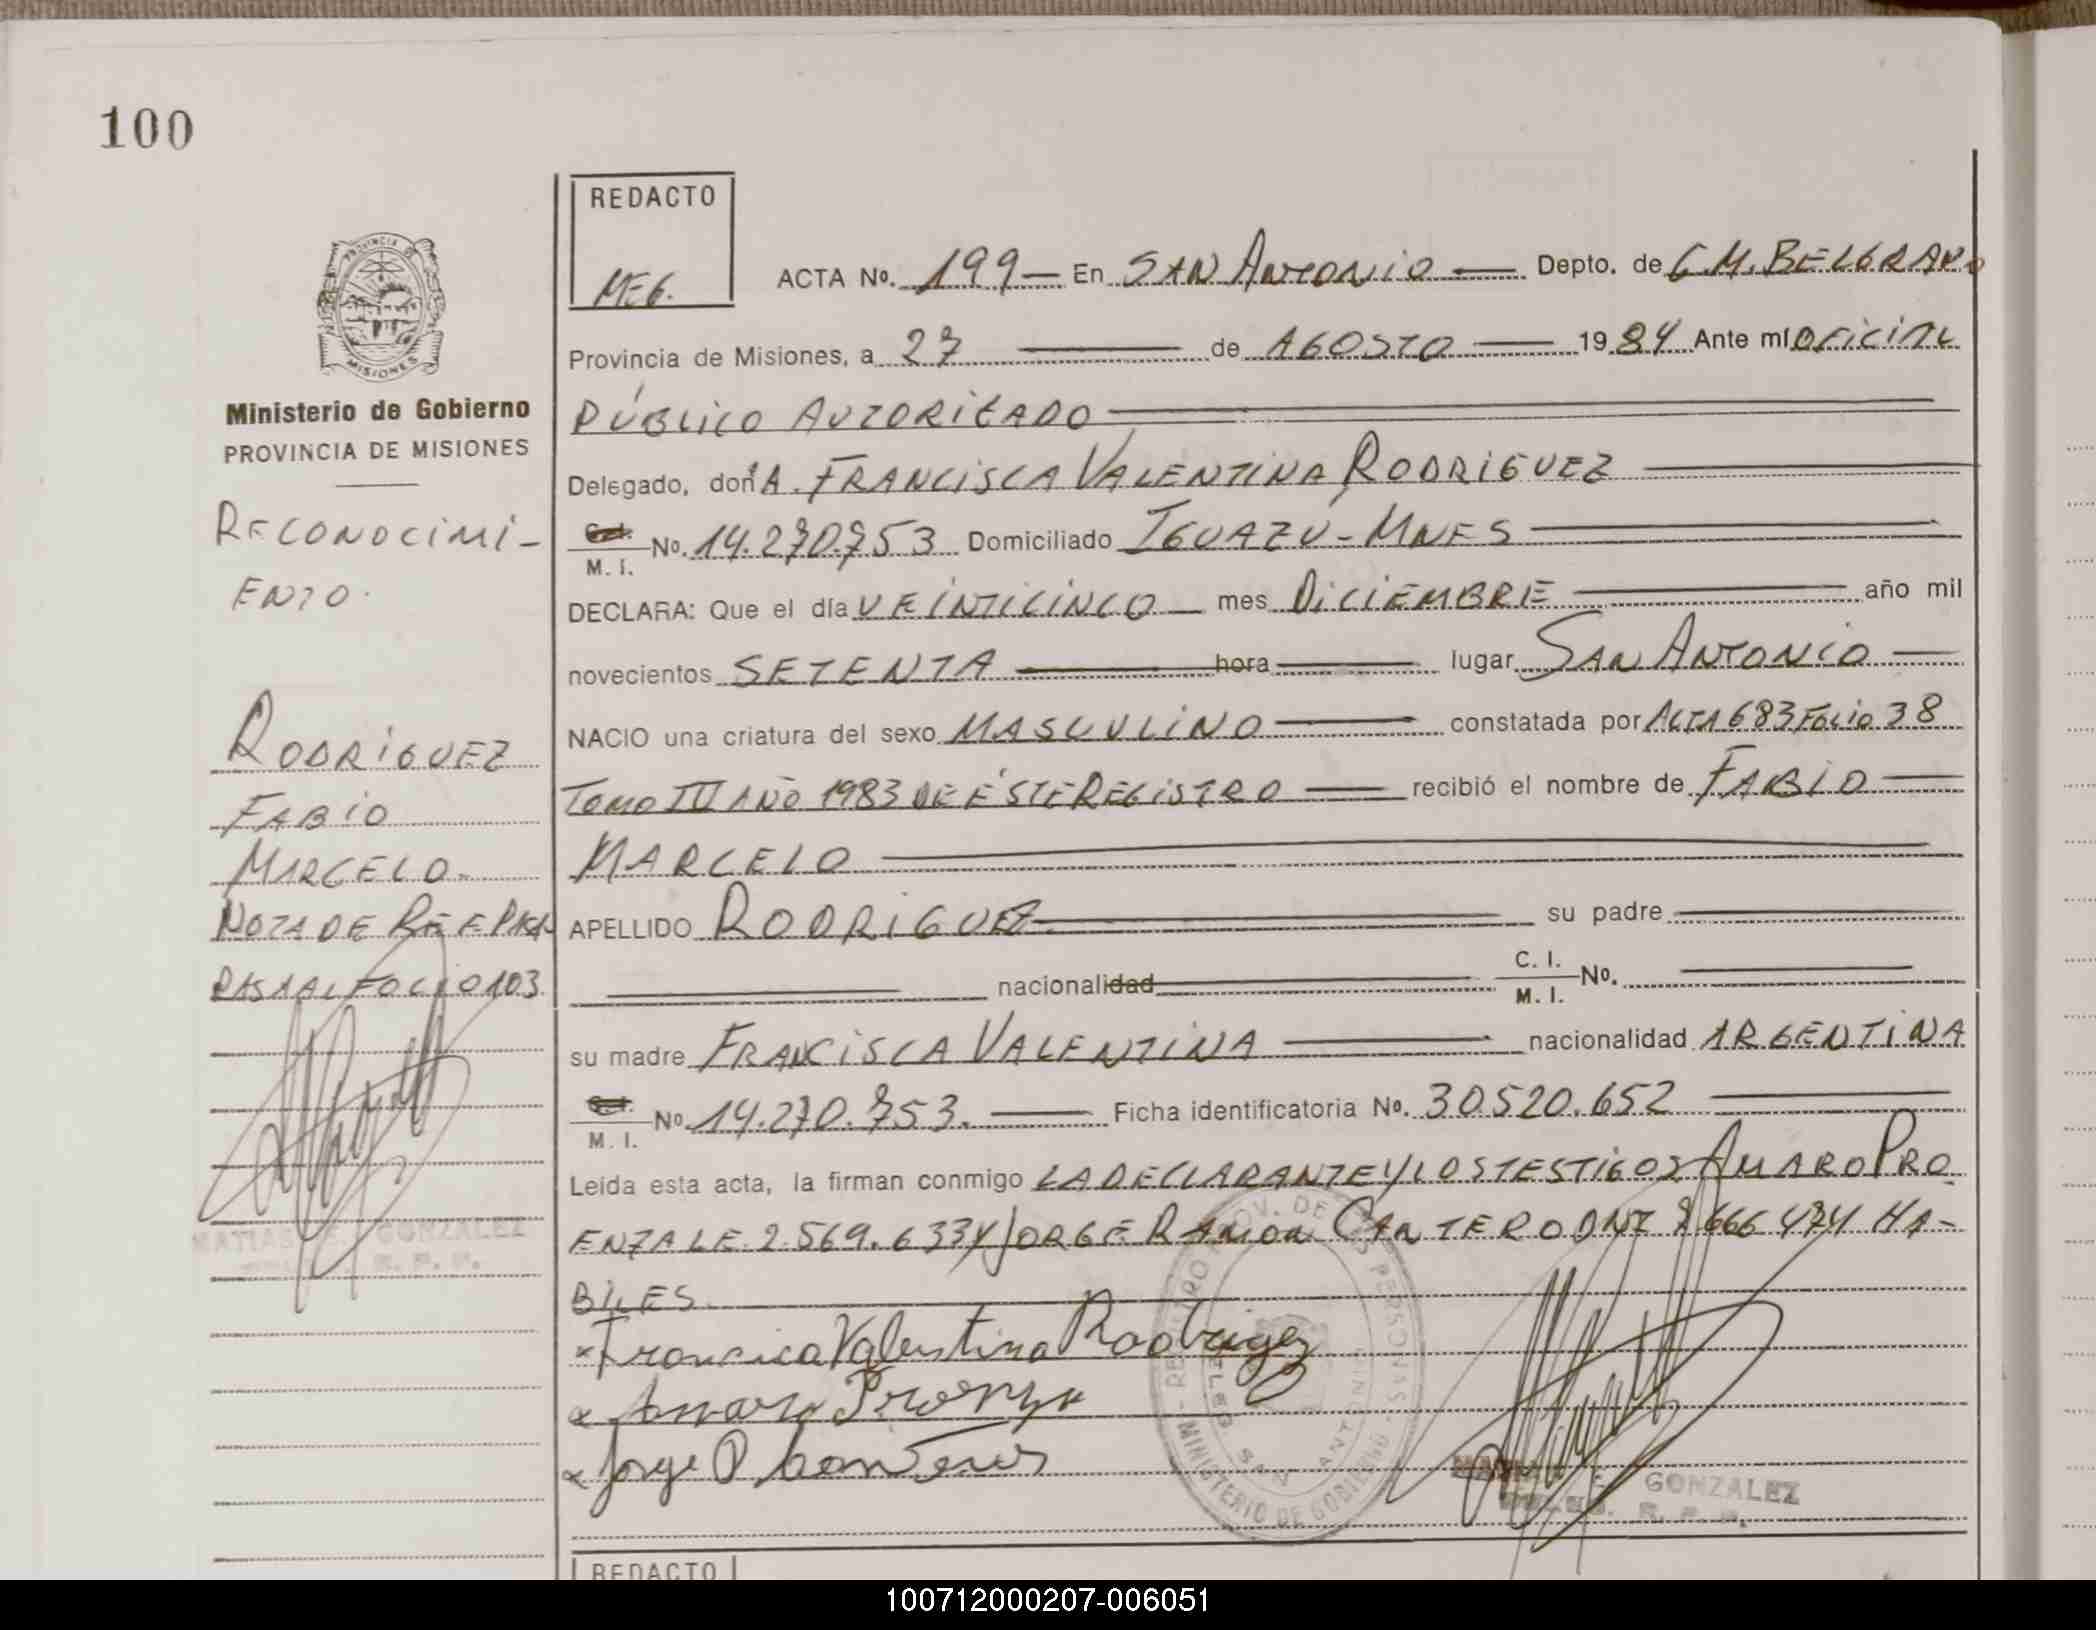 100
REDACTO
MEG.
ACTA No. 199 — En SAN ANTONIO — Depto. de G.M. BELGRANO
PROVINCIA DE
MISIONES
Ministerio de Gobierno
PROVINCIA DE MISIONES
Provincia de Misiones, a 27 — de AGOSTO — 1984 Ante mí OFICIAL
PÚBLICO AUTORIZADO
Delegado, doñA. FRANCISCA VALENTINA RODRIGUEZ
M. I. No. 14.270.753 Domiciliado IGUAZÚ - MNES
RECONOCIMI-
ENTO.
DECLARA: Que el día VEINTICINCO — mes DICIEMBRE — año mil
novecientos SETENTA — hora — lugar SAN ANTONIO —
NACIO una criatura del sexo MASCULINO — constatada por ACTA 683 FOLIO 38
TOMO III AÑO 1983 DE ÉSTE REGISTRO — recibió el nombre de FABIO —
MARCELO
APELLIDO RODRIGUEZ — su padre
nacionalidad — C. I. M. I. No.
su madre FRANCISCA VALENTINA — nacionalidad ARGENTINA
M. I. No. 14.270.753. — Ficha identificatoria No. 30.520.652
Leida esta acta, la firman conmigo LA DECLARANTE Y LOS TESTIGOS AMARO PRO
ENZA LE 2.569.633 Y JORGE RAMON CANTERO DNI 666 474 HA-
BILES.
RODRIGUEZ
FABIO
MARCELO.
NOTA DE REF
PASA AL FOLIO 103
x Francisca Valentina Rodrigez
x Amaro Proenza
x Jorge R Canteros
REGISTRO PROV. DE LAS PERSONAS
MINISTERIO DE GOBIERNO
DELEG. SAN ANTONIO
MATIAS E. GONZALEZ
GONZALEZ
REDACTO
100712000207-006051